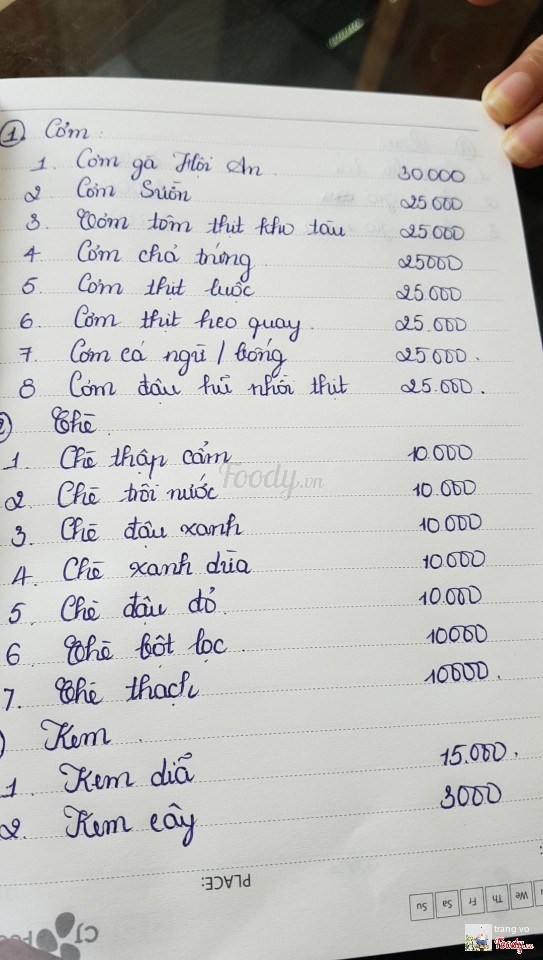 1. Cơm:
1. Cơm gà Hội An 30000
2 Cơm Sườn 25.000
3. Cơm tôm thịt kho tàu 25.000
4 Cơm chả trứng 25000
5. Cơm thịt luộc 25.000
6. Cơm thịt heo quay. 25.000
7. Cơm cá ngừ / bống 25.000.
8 Cơm đậu hũ nhồi thịt 25.000.
2) Chè.
1. Chè thập cẩm 10.000
2. Chè trôi nước 10.000
3. Chè đậu xanh 10.000
4. Chè xanh dừa 10.000
5. Chè đậu đỏ. 10.000
6 Chè bột lọc 10000
7. Chè thạch 10000.
) Kem.
1. Kem dĩa 15.000.
2. Kem cây 3000
PLACE:
We Th Fr Sa Su
CJ
Foody.vn
trang vo
Foody.vn